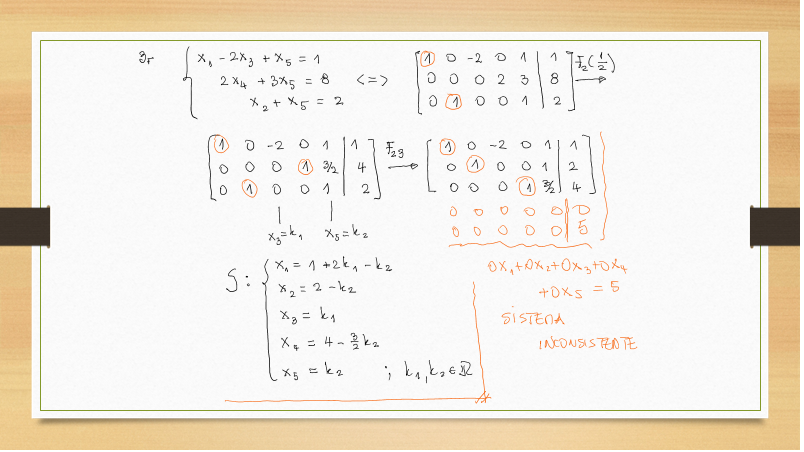 3.
x₁ - 2x₃ + x₅ = 1
2x₄ + 3x₅ = 8 <=>
x₂ + x₅ = 2
1 0 -2 0 1 | 1
0 0 0 2 3 | 8
0 1 0 0 1 | 2
F₂(1/2)
1 0 -2 0 1 | 1
0 0 0 1 3/2 | 4
0 1 0 0 1 | 2
F₂₃
1 0 -2 0 1 | 1
0 1 0 0 1 | 2
0 0 0 1 3/2 | 4
0 0 0 0 0 | 0
0 0 0 0 0 | 5
x₃=k₁ x₅=k₂
S:
x₁ = 1 + 2k₁ - k₂
x₂ = 2 - k₂
x₃ = k₁
x₄ = 4 - 3/2 k₂
x₅ = k₂ ; k₁, k₂ ∈ ℝ
0x₁+0x₂+0x₃+0x₄
+0x₅ = 5
SISTEMA
INCONSISTENTE